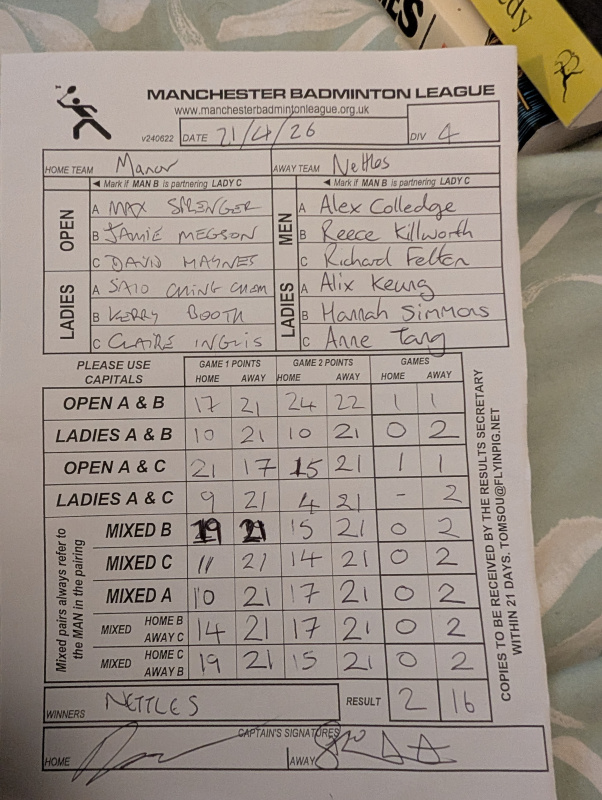 MANCHESTER BADMINTON LEAGUE
www.manchesterbadmintonleague.org.uk
v240622 DATE 21/4/26 DIV 4
HOME TEAM Manor AWAY TEAM Nettles
◄ Mark if MAN B is partnering LADY C ◄ Mark if MAN B is partnering LADY C
OPEN A MAX SPRENGER MEN A Alex Colledge
B JAMIE MEGSON B Reece Killworth
C DAVID MAGNES C Richard Felton
LADIES A CHING LADIES A Alix Keung
B KERRY BOOTH B Hannah Simmons
C CLAIRE INGLIS C Anne Tang
PLEASE USE CAPITALS GAME 1 POINTS GAME 2 POINTS GAMES
HOME AWAY HOME AWAY HOME AWAY
OPEN A & B 17 21 24 22 1 1
LADIES A & B 10 21 10 21 0 2
OPEN A & C 21 17 15 21 1 1
LADIES A & C 9 21 4 21 - 2
Mixed pairs always refer to the MAN in the pairing
MIXED B 19 21 15 21 0 2
MIXED C 11 21 14 21 0 2
MIXED A 10 21 17 21 0 2
MIXED HOME B AWAY C 14 21 17 21 0 2
MIXED HOME C AWAY B 19 21 15 21 0 2
WINNERS NETTLES RESULT 2 16
CAPTAIN'S SIGNATURES
HOME AWAY
COPIES TO BE RECEIVED BY THE RESULTS SECRETARY
WITHIN 21 DAYS. TOMSOU@FLYINPIG.NET